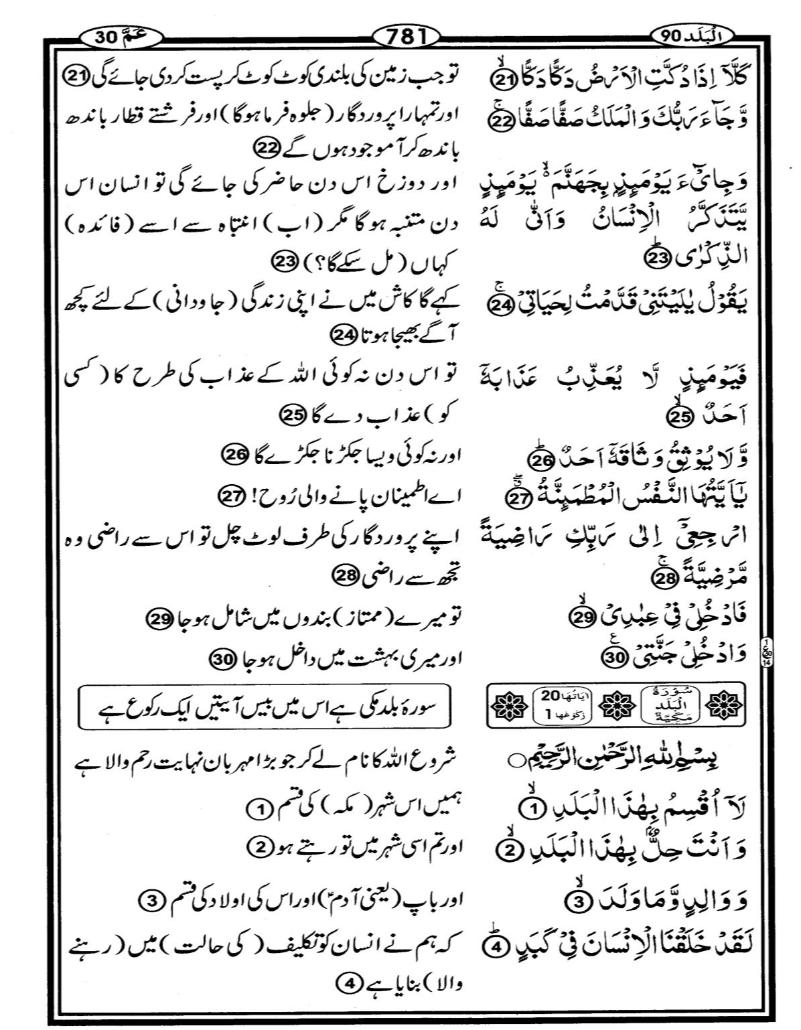 اَلۡبَلَد 90
781
عَمَّ 30
كَلَّاۤ اِذَا دُكَّتِ الۡاَرۡضُ دَكًّا دَكًّا ۙ‏ 21
تو جب زمین کی بلندی کوٹ کوٹ کر پست کر دی جائے گی 21
وَّجَآءَ رَبُّكَ وَالۡمَلَكُ صَفًّا صَفًّا ۚ‏ 22
اور تمہارا پروردگار (جلوہ فرما ہوگا) اور فرشتے قطار باندھ
باندھ کر آ موجود ہوں گے 22
وَجِاىْٓءَ يَوۡمَٮِٕذٍۢ بِجَهَنَّمَ ۙ‏ يَوۡمَٮِٕذٍ
اور دوزخ اس دن حاضر کی جائے گی تو انسان اس
يَّتَذَكَّرُ الۡاِنۡسَانُ وَاَنّٰى لَهُ
دن متنبہ ہوگا مگر (اب) انتباہ سے اسے (فائدہ)
الذِّكۡرٰى ؕ 23
کہاں (مل سکے گا؟) 23
يَقُوۡلُ يٰلَيۡتَنِىۡ قَدَّمۡتُ لِحَيَاتِىۡ‌ۚ‏ 24
کہے گا کاش میں نے اپنی زندگی (جاودانی) کے لئے کچھ
آگے بھیجا ہوتا 24
فَيَوۡمَٮِٕذٍ لَّا يُعَذِّبُ عَذَابَهٗۤ
تو اس دن نہ کوئی اللہ کے عذاب کی طرح کا (کسی
اَحَدٌ ۙ‏ 25
کو) عذاب دے گا 25
وَّلَا يُوۡثِقُ وَثَاقَهٗۤ اَحَدٌ ؕ 26
اور نہ کوئی ویسا جکڑنا جکڑے گا 26
يٰۤاَيَّتُهَا النَّفۡسُ الۡمُطۡمَٮِٕنَّةُ 27
اے اطمینان پانے والی رُوح! 27
ارۡجِعِىۡۤ اِلٰى رَبِّكِ رَاضِيَةً
اپنے پروردگار کی طرف لوٹ چل تو اس سے راضی وہ
مَّرۡضِيَّةً‌ ۚ‏ 28
تجھ سے راضی 28
فَادۡخُلِىۡ فِىۡ عِبٰدِىۙ‏ 29
تو میرے (ممتاز) بندوں میں شامل ہو جا 29
وَادۡخُلِىۡ جَنَّتِىۡ 30
اور میری بہشت میں داخل ہو جا 30
سُوۡرَةُ الۡبَلَدِ مَكِّيَّةٌ
اٰيَاتُهَا 20
رُكُوۡعُهَا 1
سورۂ بلد مکی ہے اس میں بیس آیتیں ایک رکوع ہے
بِسۡمِ اللهِ الرَّحۡمٰنِ الرَّحِيۡمِ
شروع اللہ کا نام لے کر جو بڑا مہربان نہایت رحم والا ہے
لَاۤ اُقۡسِمُ بِهٰذَا الۡبَلَدِۙ‏ 1
ہمیں اس شہر (مکہ) کی قسم 1
وَاَنۡتَ حِلٌّۢ بِهٰذَا الۡبَلَدِۙ‏ 2
اور تم اسی شہر میں تو رہتے ہو 2
وَوَالِدٍ وَّمَا وَلَدَ ۙ‏ 3
اور باپ (یعنی آدمؑ) اور اس کی اولاد کی قسم 3
لَقَدۡ خَلَقۡنَا الۡاِنۡسَانَ فِىۡ كَبَدٍؕ 4
کہ ہم نے انسان کو تکلیف (کی حالت) میں (رہنے
والا) بنایا ہے 4